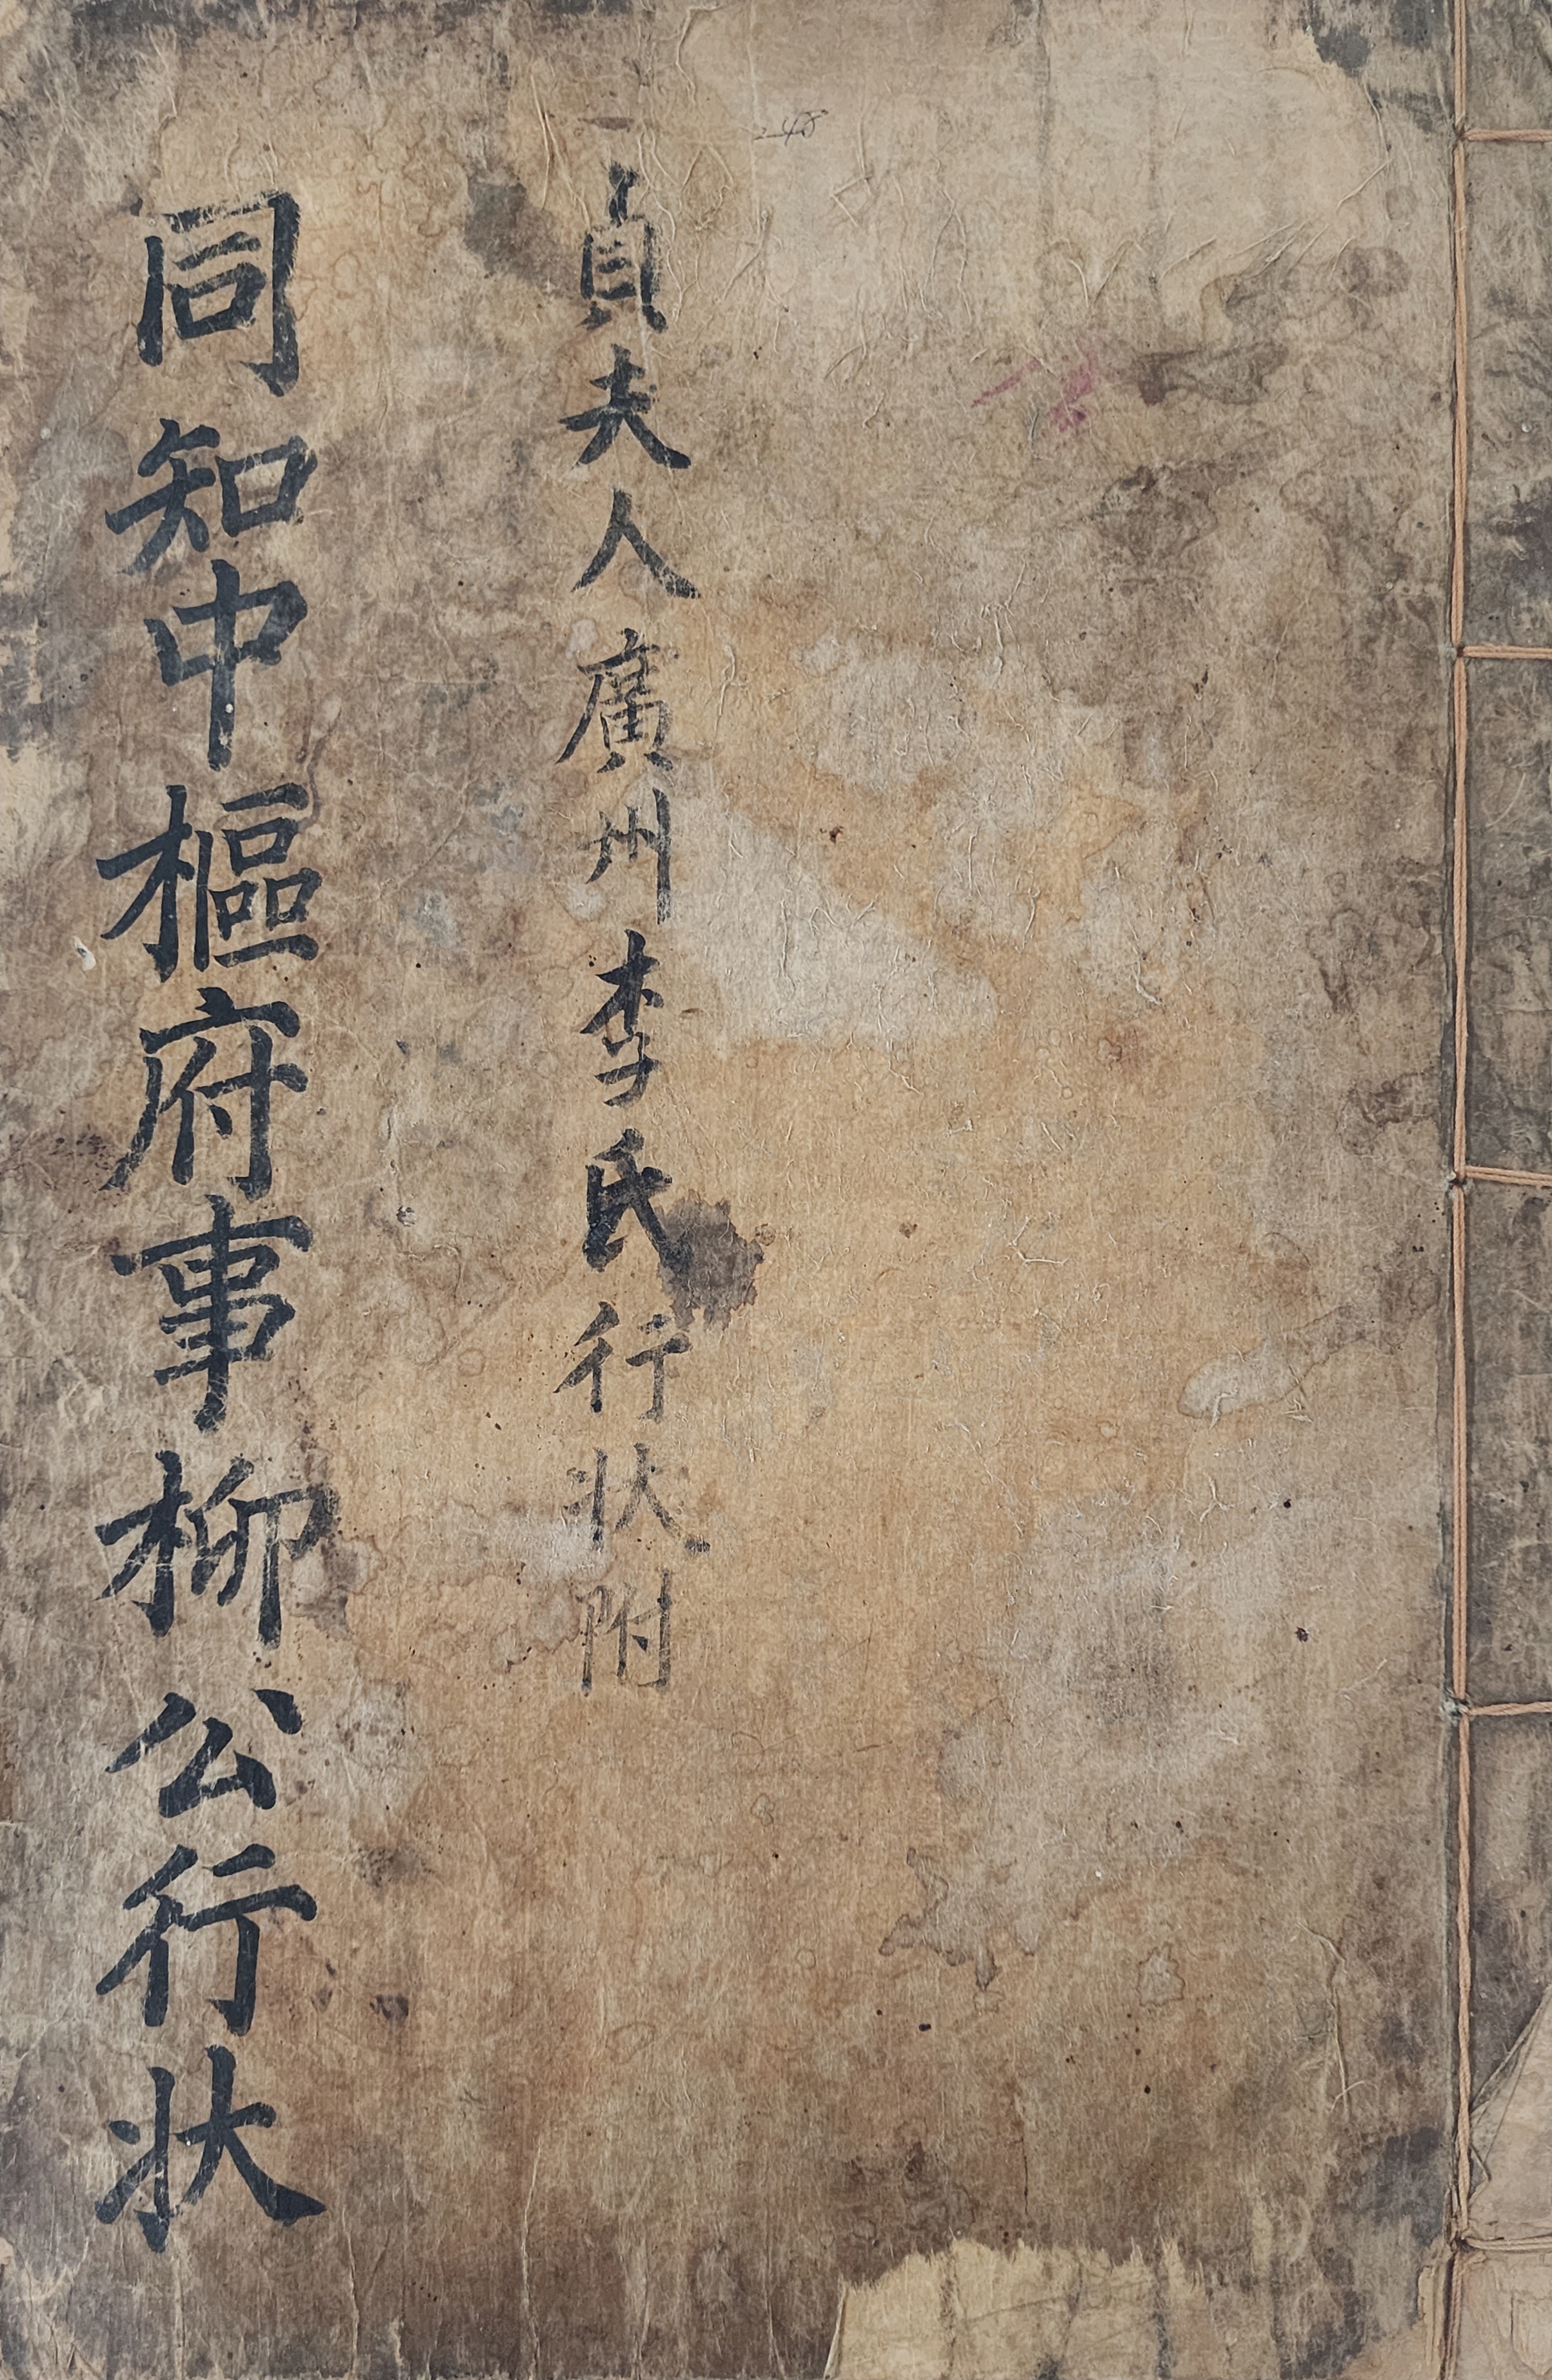 貞夫人廣州李氏行狀附
同知中樞府事柳公行狀